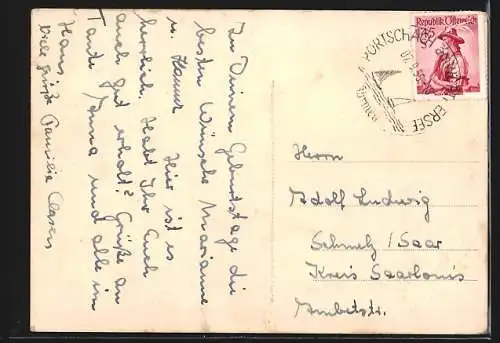 Zu Deinem Geburtstage die
besten Wünsche Marianne
u. Hannes Hier ist es
herrlich. Habt Ihr Euch
auch gut erholt? Grüße an
Tante Anna und alle im
Haus.
Viele grüße Familie Clasen
Republik Österreich
PÖRTSCHACH
ERSEE
Herrn
Adolf Ludwig
Schmelz / Saar
Kreis Saarlouis
Ambetstr.